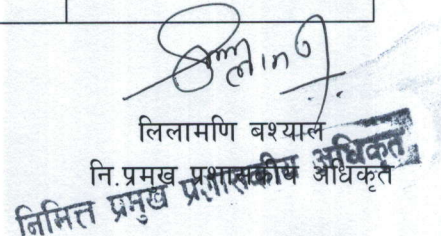 लिलामणि बश्याल
नि.प्रमुख प्रशासकीय अधिकृत
निमित्त प्रमुख प्रशासकीय अधिकृत